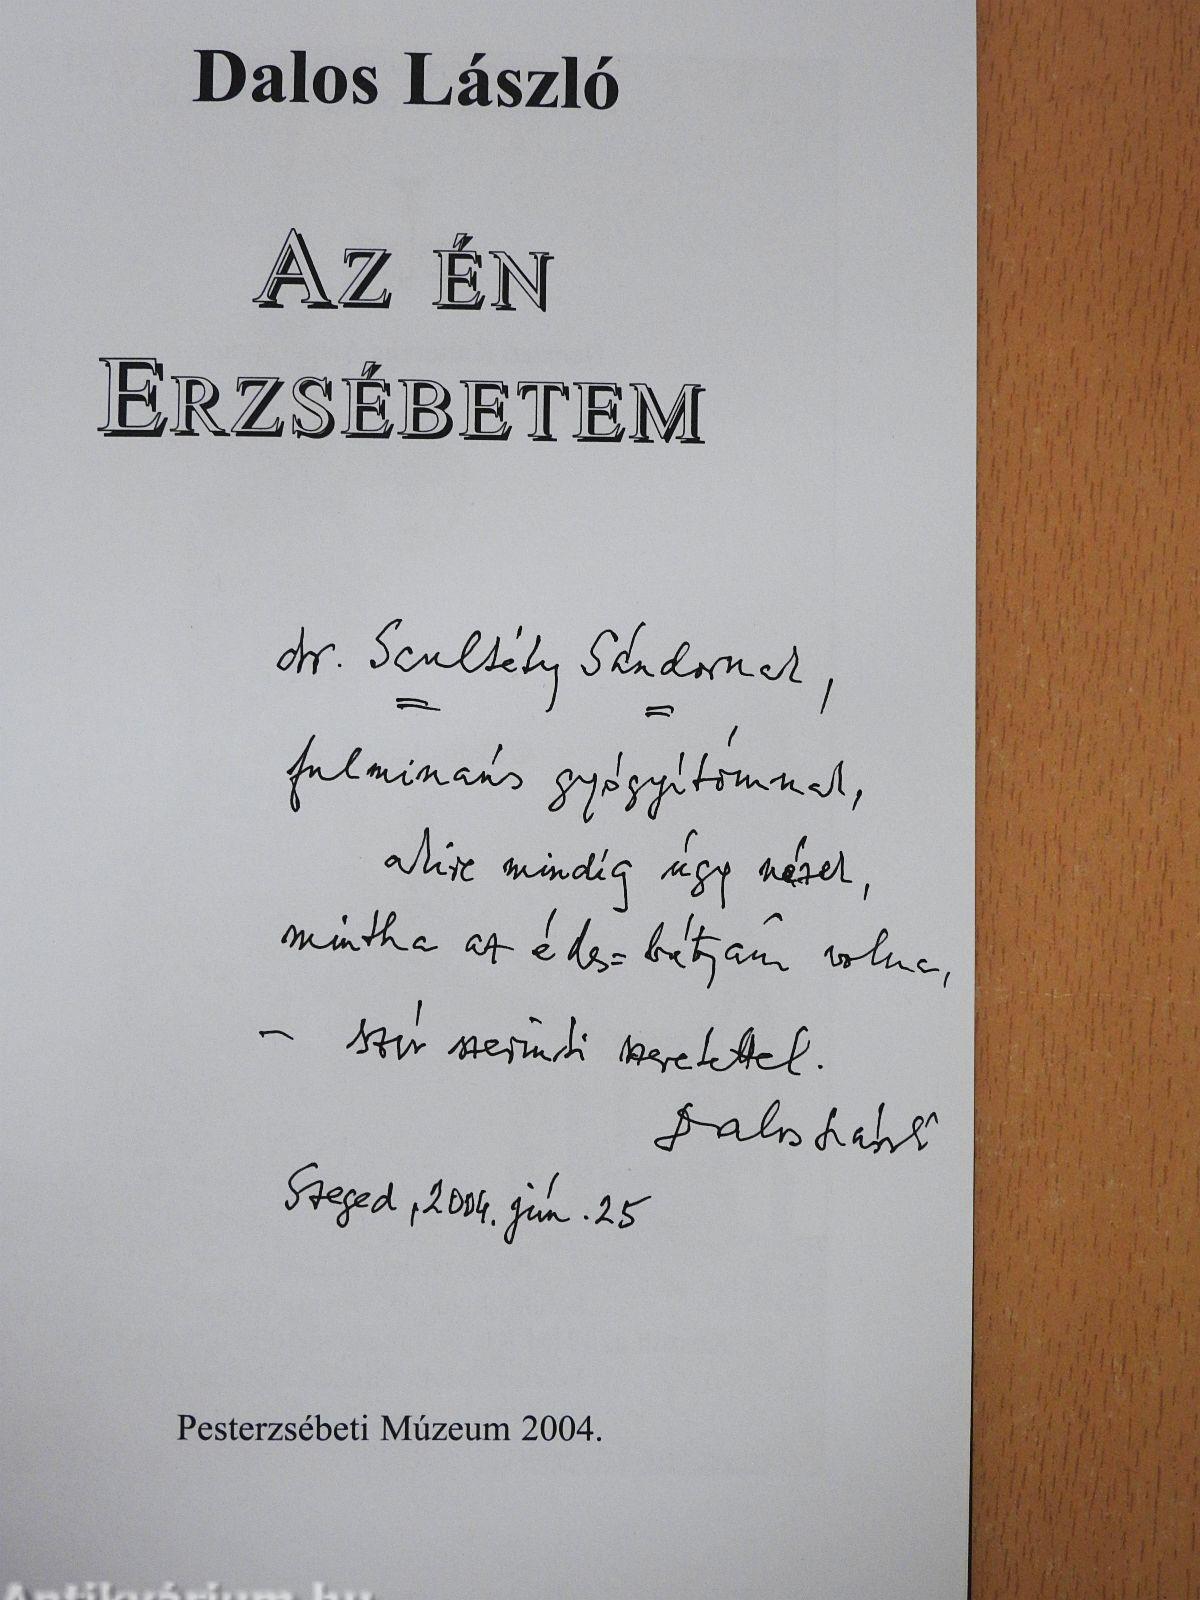 Dalos László
AZ ÉN
ERZSÉBETEM
dr. Scultéty Sándornak,
fulmináns gyógyítómnak,
akire mindig úgy nézek,
mintha az édes=bátyám volna,
– szív szerinti szeretettel.
Dalos László
Szeged, 2004. jún. 25
Pesterzsébeti Múzeum 2004.
Antikvárium.hu